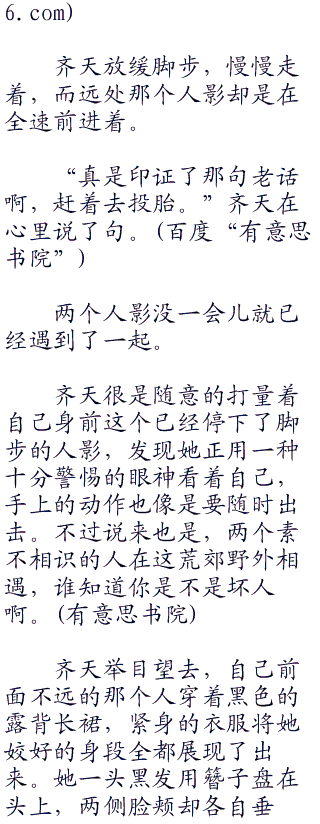 6.com)
齐天放缓脚步，慢慢走
着，而远处那个人影却是在
全速前进着。
“真是印证了那句老话
啊，赶着去投胎。”齐天在
心里说了句。(百度“有意思
书院”)
两个人影没一会儿就已
经遇到了一起。
齐天很是随意的打量着
自己身前这个已经停下了脚
步的人影，发现她正用一种
十分警惕的眼神看着自己，
手上的动作也像是要随时出
击。不过说来也是，两个素
不相识的人在这荒郊野外相
遇，谁知道你是不是坏人
啊。(有意思书院)
齐天举目望去，自己前
面不远的那个人穿着黑色的
露背长裙，紧身的衣服将她
姣好的身段全都展现了出
来。她一头黑发用簪子盘在
头上，两侧脸颊却各自垂